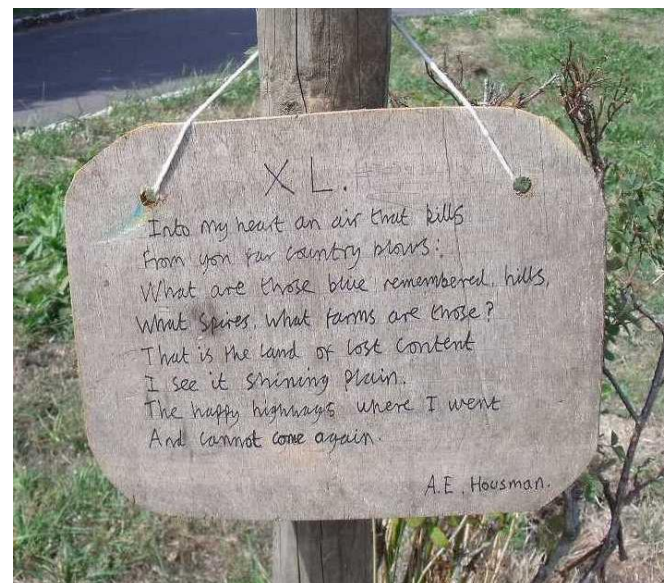 XL.
Into my heart an air that kills
From yon far country blows:
What are those blue remembered hills,
What spires, what farms are those?
That is the land of lost content
I see it shining plain.
The happy highways where I went
And cannot come again.
A.E. Housman.